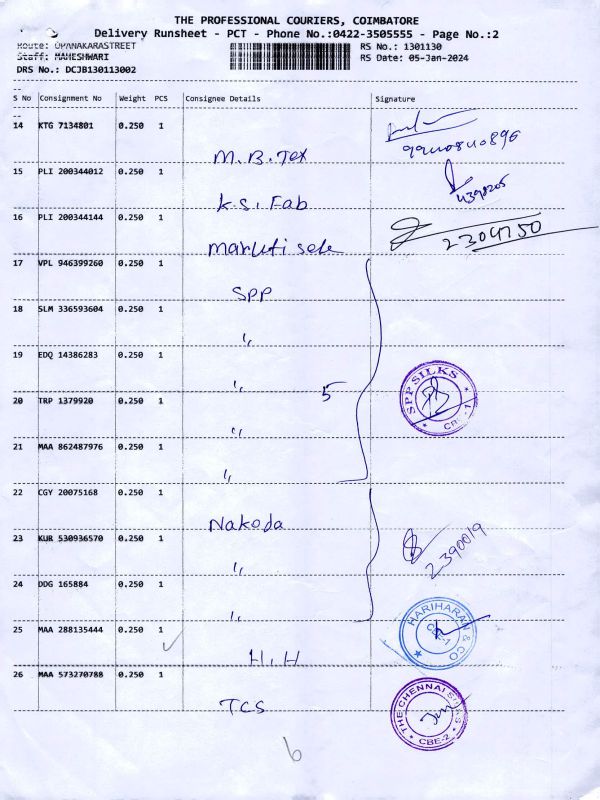 THE PROFESSIONAL COURIERS, COIMBATORE
Delivery Runsheet - PCT - Phone No.:0422-3505555 - Page No.:2
Route: OPANAKARASTREET RS No.: 1301130
Staff: MAHESHWARI RS Date: 05-Jan-2024
DRS No.: DCJB130113002
S No Consignment No Weight PCS Consignee Details Signature
14 KTG 7134801 0.250 1
M.B. Tex
15 PLI 200344012 0.250 1
K.S. Fab 4398205
16 PLI 200344144 0.250 1
maruti sele 2304750
17 VPL 946399260 0.250 1
SPP
18 SLM 336593604 0.250 1
"
19 EDQ 14386283 0.250 1
" 5 SPP SILKS CBE-1
20 TRP 1379920 0.250 1
"
21 MAA 862487976 0.250 1
"
22 CGY 20075168 0.250 1
Nakoda
23 KUR 530936570 0.250 1
" 2390019
24 DDG 165884 0.250 1
"
25 MAA 288135444 0.250 1 HARIHARAN & CO CBE-1
H.H
26 MAA 573270788 0.250 1
TCS THE CHENNAI SILKS CBE-2
6